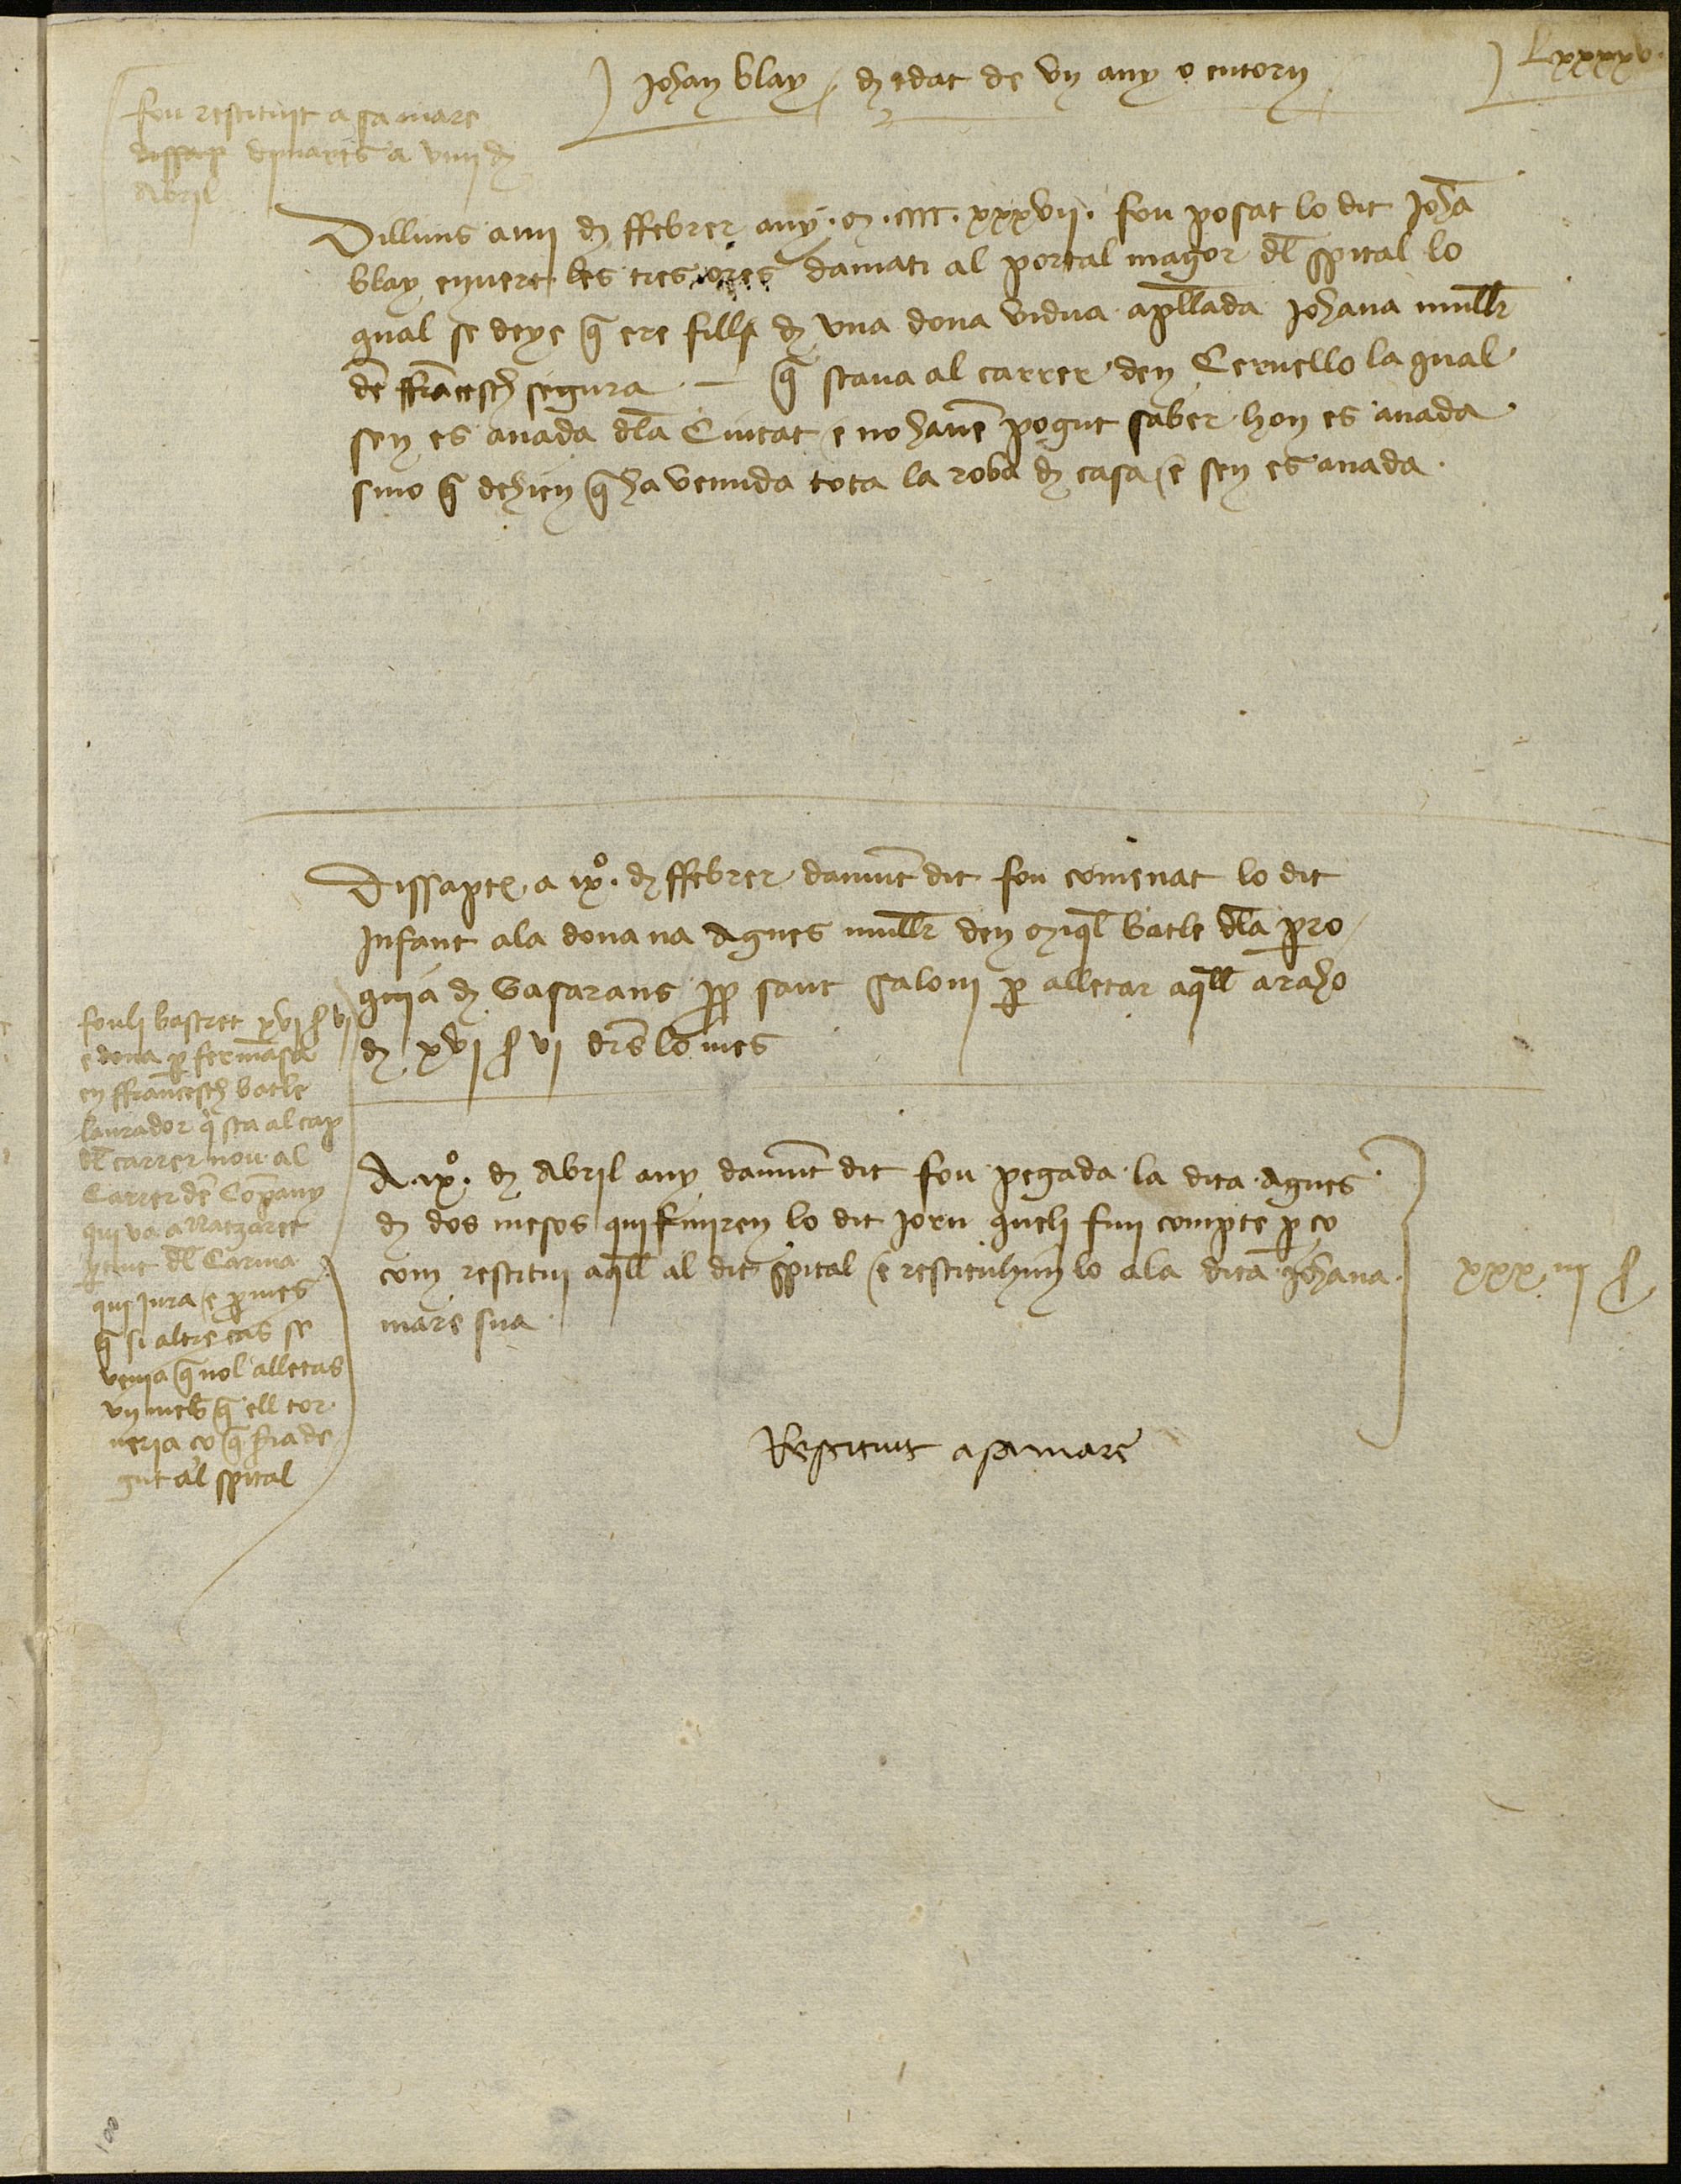 Lxxxxv.
Johan blay / de edat de vn any o entorn
fou restituit a sa mare
dissap dimarts a viiii de
Abril
Dilluns a iiii de ffebrer any .M.CCCC.xxxvii. fou posat lo dit Johā
blay enuers les tres ores damati al portal major dl spital lo
qual se deye q̄ ere fill de vna dona vidua apllada Johana mullr
dē ffrācesch segura — q̄ staua al carrer den Ceruello la qual
sen es anada dla Ciutat e no hauē pogut saber hon es anada
sino q̄ dehien q̄ ha venuda tota la roba de casa e sen es anada.
Dissapte a ixº. de ffebrer damūt dit fou comenat lo dit
Infant ala dona na Agnes mullr den Miql batle dla pro
quia de Gasarans prop sant Saloni p alletar aqll a raho
de xvi s vi drs lo mes
fouli bastret xvi s vi
e dona p fermāsa
en ffrācesch batle
laurador q sta al cap
dl carrer nou al
Carrer dē Cōpany
qui va a Natzaret
ptint dl Carma
qui jura e pmes
q̄ si altre cas se
venia q̄ nol alletas
vn mes q̄ ell tor
neria ço q̄ fia de
gut al spital
A ixº. de Abril any damūt dit fou pegada la dita Agnes
de dos mesos qui finiren lo dit jorn queli fiu compte p ço
com restitui aqll al dit spital e restituhim lo ala dita Johana
mare sua
xxxiii s
Restituit a sa mare
100